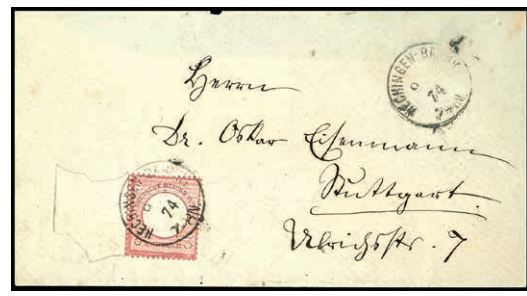 HECHINGEN-BAHNH.
74
Herrn
Dr. Oskar Eisenmann
Stuttgart.
Ulrichsstr. 7
HECHINGEN
74